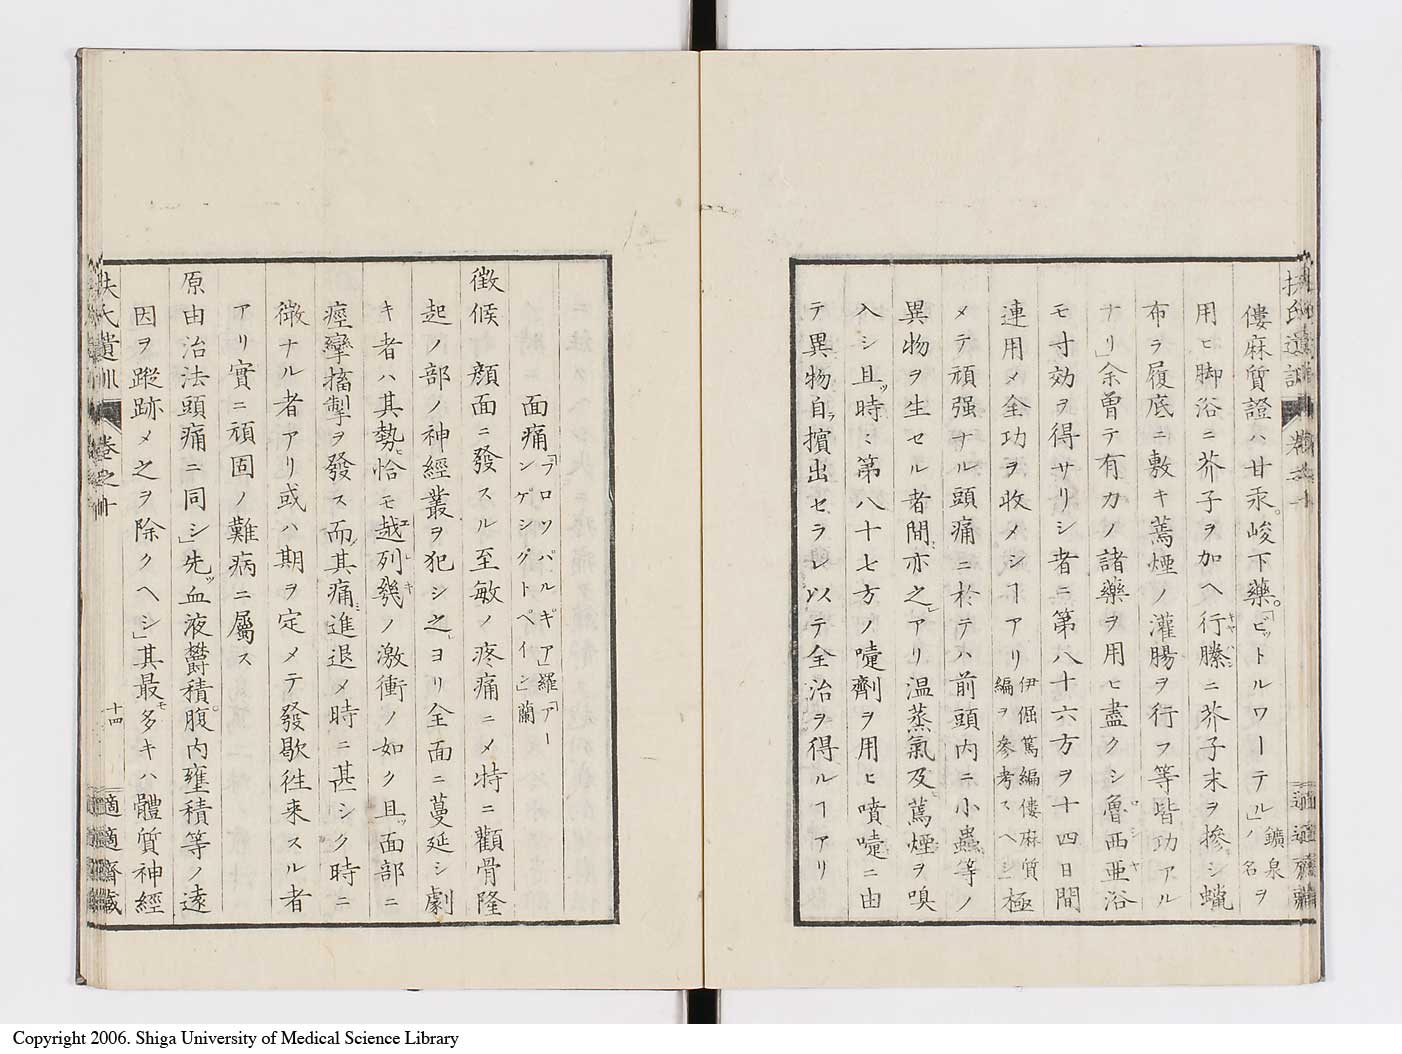 扶氏遺訓 卷之十
適適齋藏
僂麻質證ハ甘汞。峻下藥。「ビットルワーテル」鑛泉ノ名ヲ
用ヒ脚浴ニ芥子ヲ加ヘ行縢ニ芥子末ヲ摻シ蠟
布ヲ履底ニ敷キ蔫煙ノ灌腸ヲ行フ等皆功アル
ナリ」余曾テ有力ノ諸藥ヲ用ヒ盡クシ魯西亜浴
モ寸効ヲ得サリシ者ニ第八十六方ヲ十四日間
連用メ全功ヲ收メシヿアリ伊倔篤編僂麻質編ヲ參考スヘシ極
メテ頑强ナル頭痛ニ於テハ前頭内ニ小蟲等ノ
異物ヲ生セル者間亦之アリ温蒸氣及蔫煙ヲ嗅
入シ且時ミ第八十七方ノ嚏劑ヲ用ヒ噴嚏ニ由
テ異物自擯出セラレ以テ全治ヲ得ルヿアリ
面痛「プロソパルギア」羅「アーンゲシグトペイン」蘭
徴候 顔面ニ發スル至敏ノ疼痛ニメ特ニ顴骨隆
起ノ部ノ神經叢ヲ犯シ之ヨリ全面ニ蔓延シ劇
キ者ハ其勢恰モ越列幾ノ激衝ノ如ク且面部ニ
痙攣搐掣ヲ發ス而其痛進退メ時ニ甚シク時ニ
微ナル者アリ或ハ期ヲ定メテ發歇徃来スル者
アリ實ニ頑固ノ難病ニ屬ス
原由治法頭痛ニ同シ」先血液欝積。腹内壅積等ノ遠
因ヲ蹤跡メ之ヲ除クヘシ」其最多キハ體質神經
扶氏遺訓 卷之十 十四 適適齋藏
Copyright 2006. Shiga University of Medical Science Library